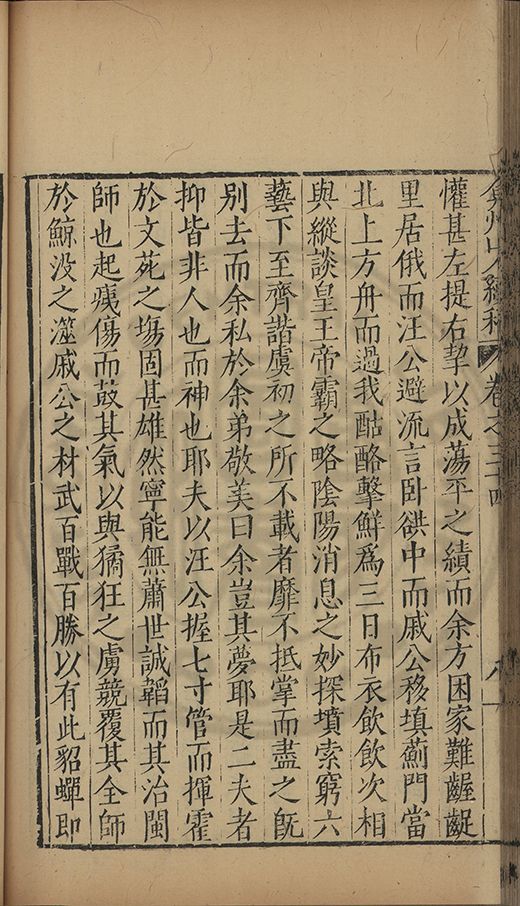 弇州山人續稿 卷之三十四 八
懽甚左提右挈以成蕩平之績而余方困家難齷齪
里居俄而汪公避流言卧谼中而戚公移填薊門當
北上方舟而過我酤酪擊鮮爲三日布衣飲飲次相
與縱談皇王帝霸之略陰陽消息之妙探墳索窮六
藝下至齊諧虞初之所不載者靡不抵掌而盡之旣
别去而余私於余弟敬美曰余豈其夢耶是二夫者
抑皆非人也而神也耶夫以汪公握七寸管而揮霍
於文苑之塲固甚雄然寧能無蕭世諴韜而其治閩
師也起痍傷而鼓其氣以與獝狂之虜競覆其全師
於鯨没之澨戚公之材武百戰百勝以有此貂蟬即